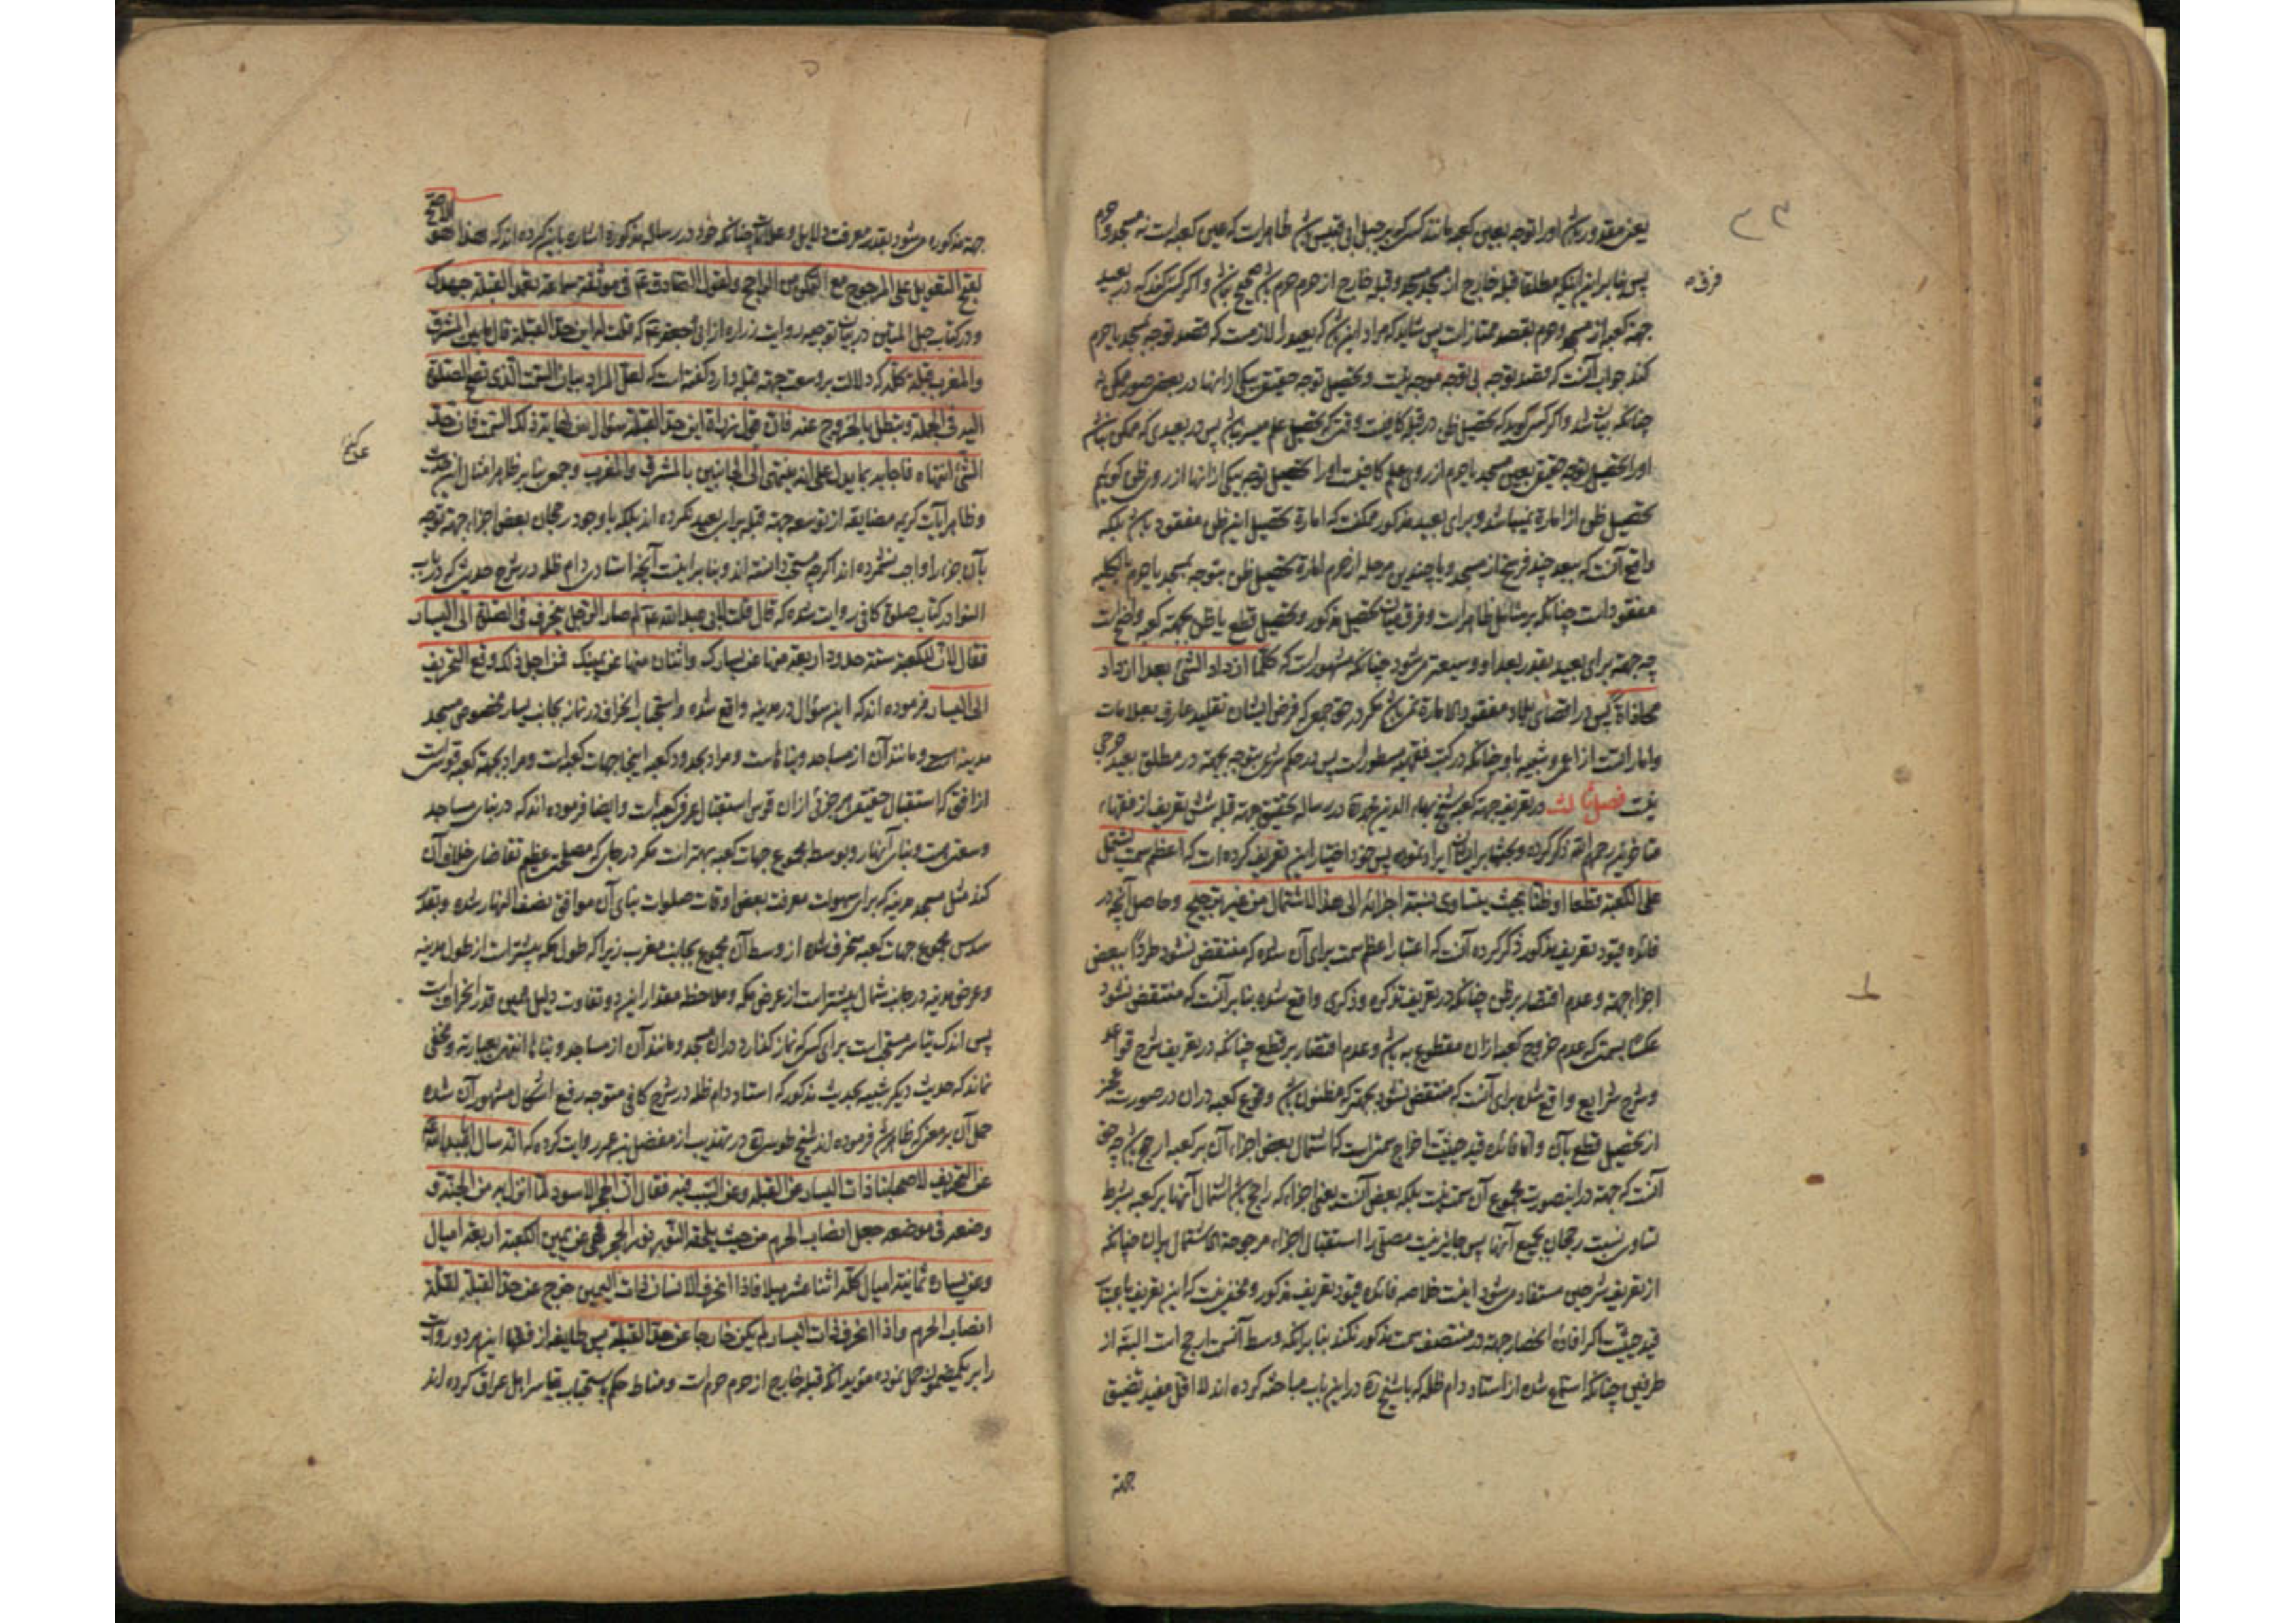 یعنی مقدور باشد او را توجه بعین کعبه مانند کسی که بر جبل ابی قبیس باشد ظاهر است که عین کعبه است نه مسجد و حرم
پس بنا بر این اینکه مطلقا قبله خارج از مسجد مسجد و قبله خارج از حرم حرم باشد صحیح نباشد و اگر کسی گوید که در بعید
جهة کعبه از مسجد و حرم بقصد ممتاز است پس شاید که مراد این باشد که بعید را لازمست که قصد توجه بمسجد یا حرم
کند جواب آنست که قصد توجه بی توجه موجه نیست و تحصیل توجه حقیقی بیکی از اینها در بعض صور ممکن نه
چنانکه بیاید و اگر کسی گوید که تحصیل ظن در قبله کافیست وقتی که تحصیل علم میسر نباشد پس در بعیدی که ممکن نباشد
او را تحصیل توجه حقیقی بعین مسجد یا حرم از روی علم کافیست او را تحصیل توجه بیکی از آنها از روی ظن گوئیم
تحصیل ظن از اماره میباشد و برای بعید مذکور ممکنست که امارة تحصیل این ظن مفقود باشد بلکه
واقع آنست که ببعد چند فرسخ از مسجد و یا چندین مرحله از حرم امارة تحصیل ظن بتوجه بمسجد یا حرم بالکلیه
مفقود است چنانکه بر متأمل ظاهر است و فرق میان تحصیل مذکور و تحصیل قطع یا ظن بجهة کعبه واضح است
چه جهة برای بعید بقدر بعد او وسیعتر میشود چنانکه مشهور است که کلما ازداد الشئ بعدا ازداد
محاذاة پس در اقصای بلاد مفقود الامارة نمیباشد مگر در حق جمعی که فرض ایشان تقلید عارف بعلامات
و امارات است از اعمی و شبیه باو چنانکه در کتب فقهیه مسطور است پس در حکم شرعی بتوجه بجهة در مطلق بعید حرجی
نیست فصل ثالث در تعریف جهة کعبه شیخ بهاء الدین محمد ره در رساله تحقیق جهة قبله شش تعریف از فقهاء
متاخرین رحمهم الله ذکر کرده و بحثها بر ایشان ایراد نموده پس خود اختیار این تعریف کرده است که اعظم سمت یشتمل
علی الکعبة قطعا او ظنا بحیث یتساوی نسبة اجزائه الی هذا الاشتمال من غیر ترجیح و حاصل آنچه در
فائده قیود تعریف مذکور ذکر کرده آنست که اعتبار اعظم سمت برای آن شده که منتقض نشود طردا ببعض
اجزاء جهة و عدم اقتصار بر ظن چنانکه در تعریف تذکره و ذکری واقع شده بنا بر آنست که منتقض نشود
عکسا بسمتی که عدم خروج کعبه ازان مقطوع به باشد و عدم اقتصار بر قطع چنانکه در تعریف شرح قواعد
و شرح شرایع واقع شده برای آنست که منتقض نشود بجهتی که مظنون باشد وقوع کعبه دران در صورت عجز
از تحصیل قطع بآن و اما فائده قید حیثیت اخراج سمتی است که اشتمال بعض اجزاء آن بر کعبه ارجح باشد چه حق
آنست که جهة در اینصورت مجموع آن سمت نیست بلکه بعض آنست یعنی اجزاء که راجح باشد اشتمال آنها بر کعبه بشرط
تساوی نسبت رجحان بجمیع آنها پس جایز نیست مصلی را استقبال اجزاء مرجوحة الاشتمال بران چنانکه
از تعریف شرحین مستفاد میشود اینست خلاصه فائده قیود تعریف مذکور و مخفی نیست که این تعریف باعتبار
قید حیثیت اگر افاده انحصار جهة در منتصف سمت مذکور نکند بنا برانکه وسط آنسمت ارجح است البتة از
طرفین چنانکه استماع شده از استاد دام ظله که با شیخ ره در این باب مباحثه کرده اند لااقل مفید تضییق
جهة
فرق
جهة مذکوره میشود بقدر معرفت دلایل و علامات چنانکه خود در رساله مذکوره اشاره باین کرده اند که هذا هو الاصح
لقبح التعویل علی المرجوح مع التمکن من الراجح و لقول الصادق عم فی موثقة سماعة تعمد القبلة جهدک
و در کتاب حبل المتین در بیان توجیه روایت زراره از ابی جعفر عم که قلت له این حد القبلة قال ما بین المشرق
والمغرب قبلة کله که دلالت بر وسعت جهة قبله دارد گفته است که لعل المراد بیان السمت الذی تصح الصلوة
الیه فی الجملة و تبطل بالخروج عنه فان قول زرارة این حد القبلة سؤال عن نهایة ذلک السمت فان حد
الشئ انتهاه فاجابه بما یدل علی انه ینتهی الی الجانبین بالمشرق والمغرب و جمعی بنا بر ظاهر امثال این حدیث
و ظاهر آیات کریمه مضایقه از توسعه جهة قبله برای بعید نکرده اند بلکه با وجود رجحان بعض اجزاء جهة توجه
بآن جزء را واجب نشمرده اند اگرچه مستحب دانسته اند و بنا بر اینست آنچه استادی دام ظله در شرح حدیثی که در باب
النوادر کتاب صلوة کافی روایت شده که قال قلت لابی عبدالله عم لم صار الرجل ینحرف فی الصلوة الی الیسار
فقال لان للکعبة ستة حدود اربعة منها عن یسارک واثنان منها عن یمینک فمن اجل ذلک وقع التحریف
الی الیسار فرموده اند که این سؤال در مدینه واقع شده و استحباب انحراف در نماز بجانب یسار مخصوص مسجد
مدینه است و مانند آن از مساجد و بناهاست و مراد بحدود کعبه اینجا جهات کعبه است و مراد بجهة کعبه قوسیست
از افق که استقبال حقیقی هر جزئی ازان قوس استقبال عرفی کعبه است و ایضا فرموده اند که در بنای مساجد
وسعتی هست و بنای آنها رو بوسط مجموع جهات کعبه بهتر است مگر در جایی که مصلحت عظیم تقاضای خلاف آن
کند مثل مسجد مدینه که برای سهولت معرفت بعض اوقات صلوات بنای آن موافق نصف النهار شده و بقدر
سدس مجموع جهات کعبه منحرف شده از وسط آن مجموع بجانب مغرب زیرا که طول مکه بیشتر است از طول مدینه
و عرض مدینه در جانب شمال بیشتر است از عرض مکه و ملاحظه مقدار این دو تفاوت دلیل همین قدر انحرافست
پس اندک تیاسر مستحب است برای کسی که نماز گذارد دران مسجد و مانند آن از مساجد و بناها انتهی بعبارته و مخفی
نماند که حدیث دیگر شبیه بحدیث مذکور که استاد دام ظله در شرح کافی متوجه رفع اشکال مشهور آن شده
حمل آن بر معنی که ظاهر باشد فرموده اند شیخ طوسی ره در تهذیب از مفضل بن عمر روایت کرده که انه سال ابا عبدالله عم
عن التحریف لاصحابنا ذات الیسار عن القبلة و عن السبب فیه فقال ان الحجر الاسود لما انزل به من الجنة و
وضعه فی موضعه جعل انصاب الحرم من حیث یلحقه النور نور الحجر فهی عن یمین الکعبة اربعة امیال
وعن یساره ثمانیة امیال کله اثنا عشر میلا فاذا انحرف الانسان ذات الیمین خرج عن حد القبلة لقلة
انصاب الحرم و اذا انحرف ذات الیسار لم یکن خارجا عن حد القبلة پس طایفه از فقها این هر دو روایت
را بر یکمضمون حمل نموده مؤید انکه قبله خارج از حرم حرم است و مناط حکم باستحباب تیاسر اهل عراق کرده اند